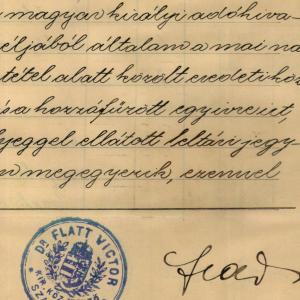 magyar királyi adóhiva-
céljából általam a mai na
tétel alatt közölt eredetihez
és a hozzáfűzött egyíves,
bélyeggel ellátott leltári jegy-
megegyezik, ezennel
DR FLATT VICTOR
KIR. KÖZ